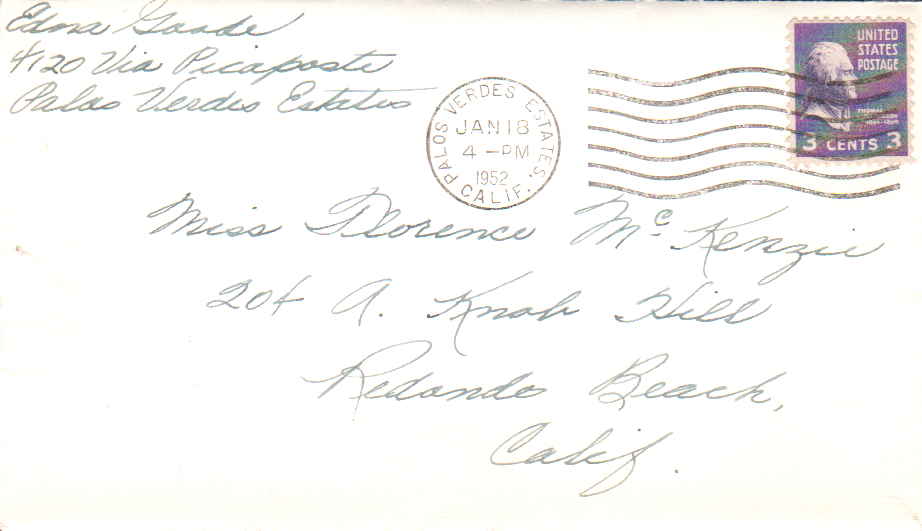 Edna Goode
4120 Via Picaposte
Palos Verdes Estates
PALOS VERDES ESTATES, CALIF.
JAN 18
4 - PM
1952
UNITED
STATES
POSTAGE
THOMAS
3 CENTS 3
Miss Florence Mc Kenzie
204 A. Knob Hill
Redondo Beach,
Calif.